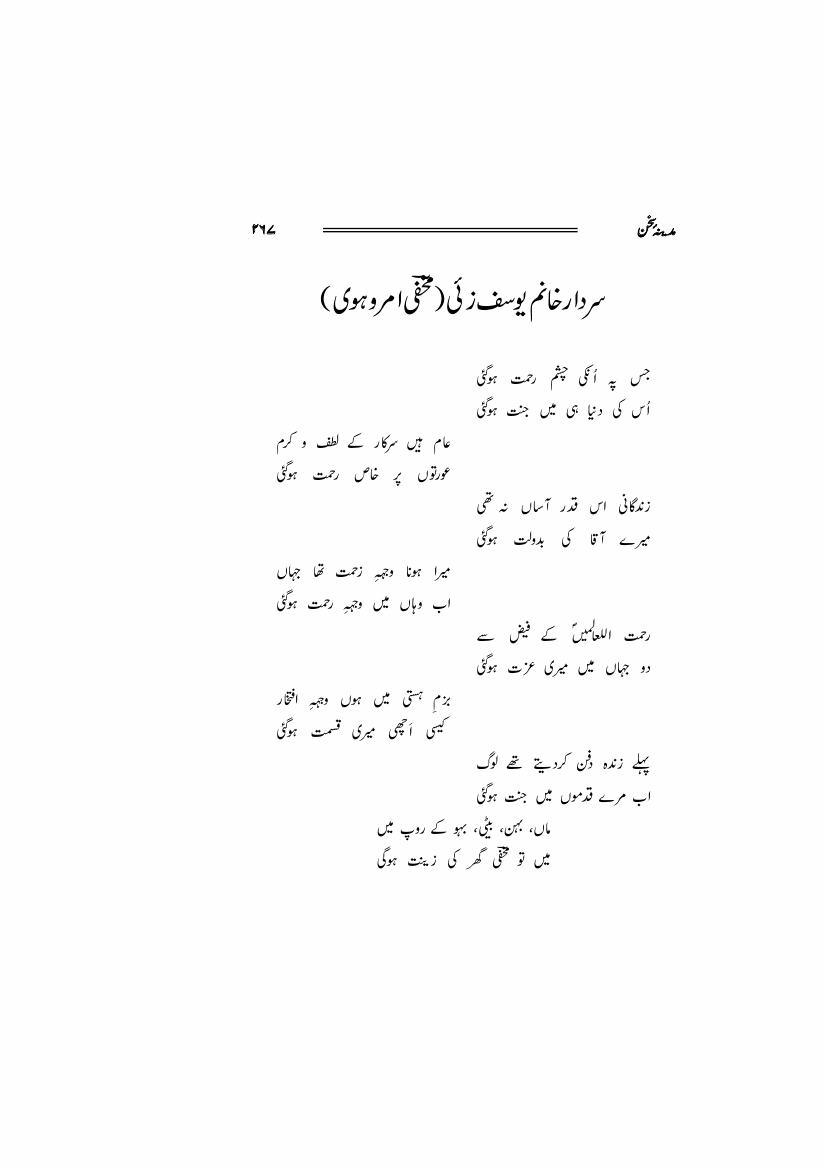 مدینۂ سخن ۲۶۷
سردار خانم یوسف زئی (مخفیؔ امروہوی)
جس پہ اُنکی چشم رحمت ہوگئی
اُس کی دنیا ہی میں جنت ہوگئی
عام ہیں سرکار کے لطف و کرم
عورتوں پر خاص رحمت ہوگئی
زندگانی اس قدر آساں نہ تھی
میرے آقا کی بدولت ہوگئی
میرا ہونا وجہہِ زحمت تھا جہاں
اب وہاں میں وجہہِ رحمت ہوگئی
رحمت اللعالمیںؐ کے فیض سے
دو جہاں میں میری عزت ہوگئی
بزمِ ہستی میں ہوں وجہہِ افتخار
کیسی اَچھی میری قسمت ہوگئی
پہلے زندہ دفن کردیتے تھے لوگ
اب مرے قدموں میں جنت ہوگئی
ماں، بہن، بیٹی، بہو کے روپ میں
میں تو مخفیؔ گھر کی زینت ہوگی